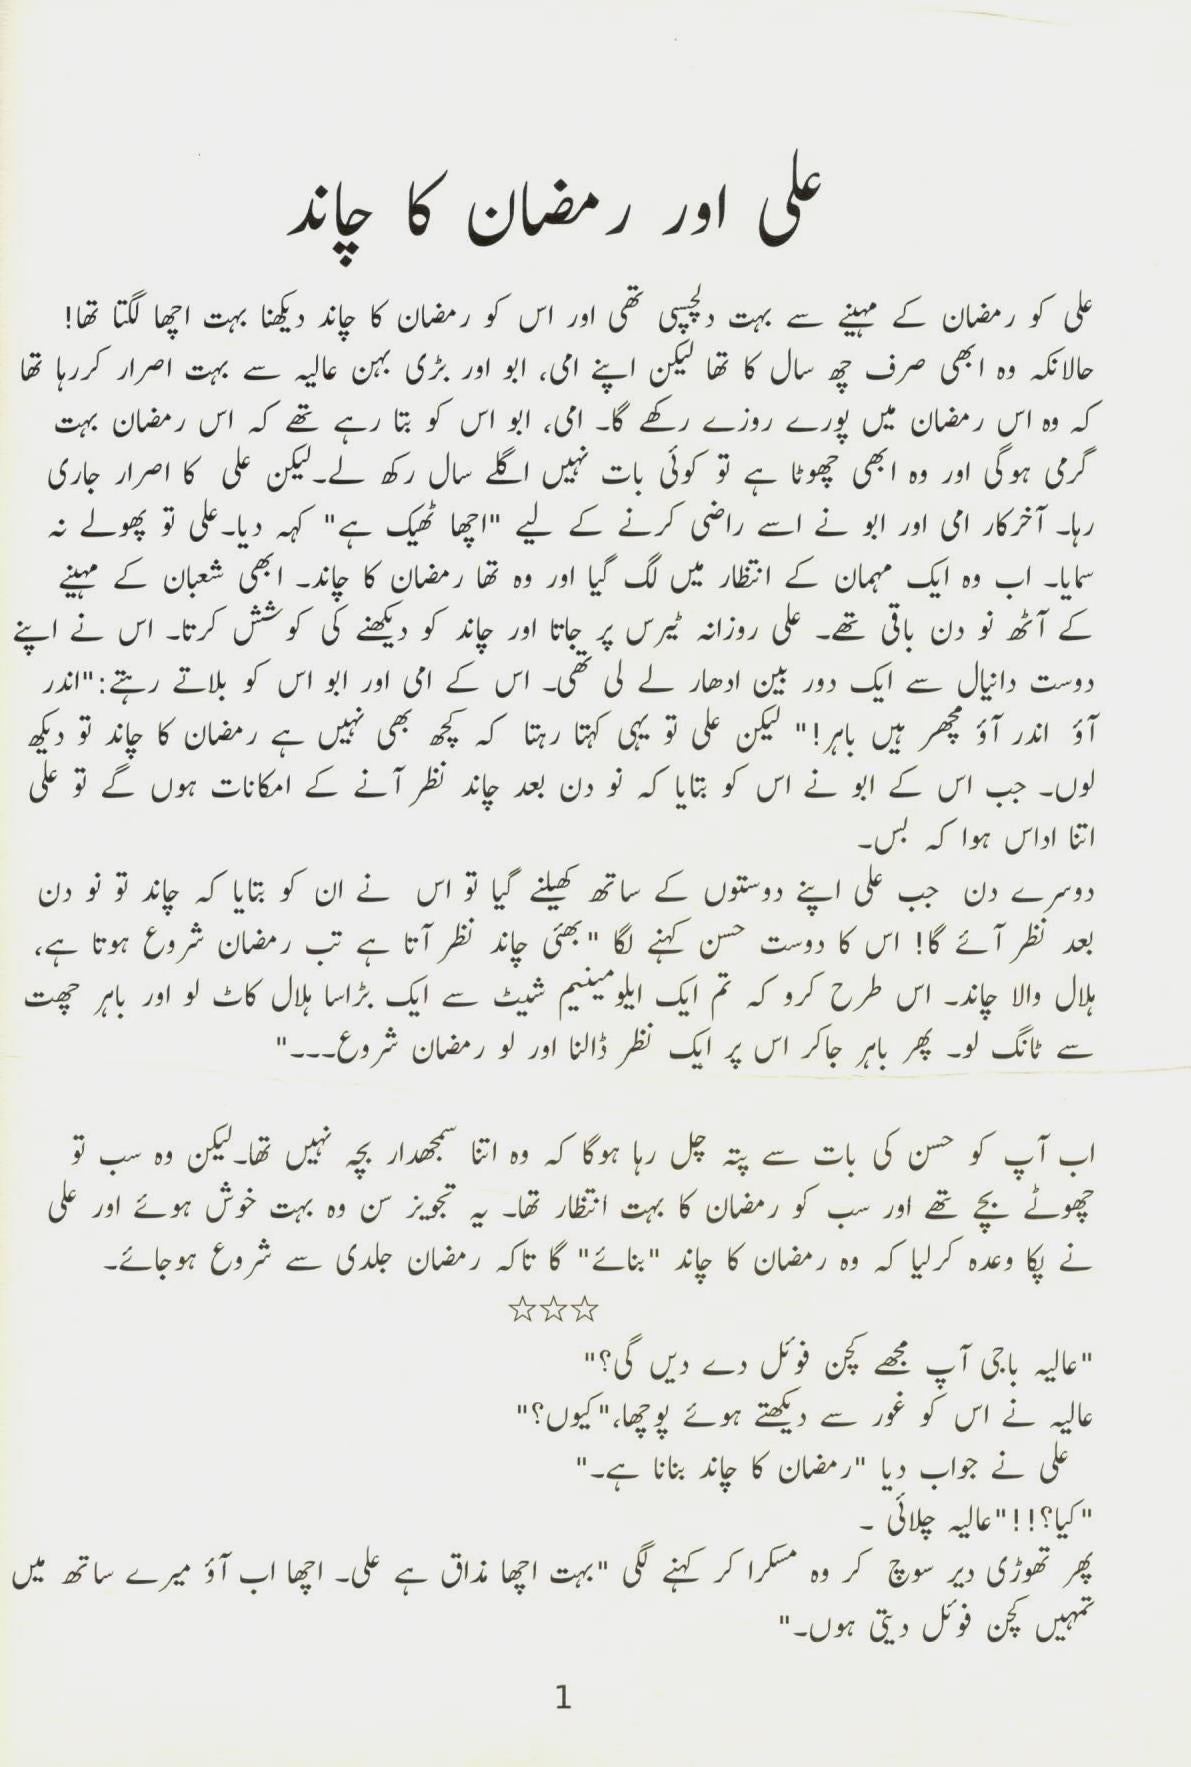 علی اور رمضان کا چاند
علی کو رمضان کے مہینے سے بہت دلچسپی تھی اور اس کو رمضان کا چاند دیکھنا بہت اچھا لگتا تھا!
حالانکہ وہ ابھی صرف چھ سال کا تھا لیکن اپنے امی، ابو اور بڑی بہن عالیہ سے بہت اصرار کررہا تھا
کہ وہ اس رمضان میں پورے روزے رکھے گا۔ امی، ابو اس کو بتا رہے تھے کہ اس رمضان بہت
گرمی ہوگی اور وہ ابھی چھوٹا ہے تو کوئی بات نہیں اگلے سال رکھ لے۔لیکن علی کا اصرار جاری
رہا۔ آخرکار امی اور ابو نے اسے راضی کرنے کے لیے "اچھا ٹھیک ہے" کہہ دیا۔علی تو پھولے نہ
سمایا۔ اب وہ ایک مہمان کے انتظار میں لگ گیا اور وہ تھا رمضان کا چاند۔ ابھی شعبان کے مہینے
کے آٹھ نو دن باقی تھے۔ علی روزانہ ٹیرس پر جاتا اور چاند کو دیکھنے کی کوشش کرتا۔ اس نے اپنے
دوست دانیال سے ایک دور بین ادھار لے لی تھی۔ اس کے امی اور ابو اس کو بلاتے رہتے:"اندر
آؤ اندر آؤ مچھر ہیں باہر!" لیکن علی تو یہی کہتا رہتا کہ کچھ بھی نہیں ہے رمضان کا چاند تو دیکھ
لوں۔ جب اس کے ابو نے اس کو بتایا کہ نو دن بعد چاند نظر آنے کے امکانات ہوں گے تو علی
اتنا اداس ہوا کہ بس۔
دوسرے دن جب علی اپنے دوستوں کے ساتھ کھیلنے گیا تو اس نے ان کو بتایا کہ چاند تو نو دن
بعد نظر آئے گا! اس کا دوست حسن کہنے لگا "بھئی چاند نظر آتا ہے تب رمضان شروع ہوتا ہے،
ہلال والا چاند۔ اس طرح کرو کہ تم ایک ایلومینیم شیٹ سے ایک بڑاسا ہلال کاٹ لو اور باہر چھت
سے ٹانگ لو۔ پھر باہر جاکر اس پر ایک نظر ڈالنا اور لو رمضان شروع۔۔۔"
اب آپ کو حسن کی بات سے پتہ چل رہا ہوگا کہ وہ اتنا سمجھدار بچہ نہیں تھا۔لیکن وہ سب تو
چھوٹے بچے تھے اور سب کو رمضان کا بہت انتظار تھا۔ یہ تجویز سن وہ بہت خوش ہوئے اور علی
نے پکا وعدہ کرلیا کہ وہ رمضان کا چاند "بنائے" گا تاکہ رمضان جلدی سے شروع ہوجائے۔
☆☆☆
"عالیہ باجی آپ مجھے کچن فوئل دے دیں گی؟"
عالیہ نے اس کو غور سے دیکھتے ہوئے پوچھا،"کیوں؟"
علی نے جواب دیا "رمضان کا چاند بنانا ہے۔"
"کیا؟!!"عالیہ چلائی ۔
پھر تھوڑی دیر سوچ کر وہ مسکرا کر کہنے لگی "بہت اچھا مذاق ہے علی۔ اچھا اب آؤ میرے ساتھ میں
تمہیں کچن فوئل دیتی ہوں۔"
1